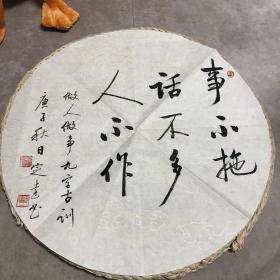 事不拖
话不多
人不作
做人做事九字古训
庚子秋日定远书